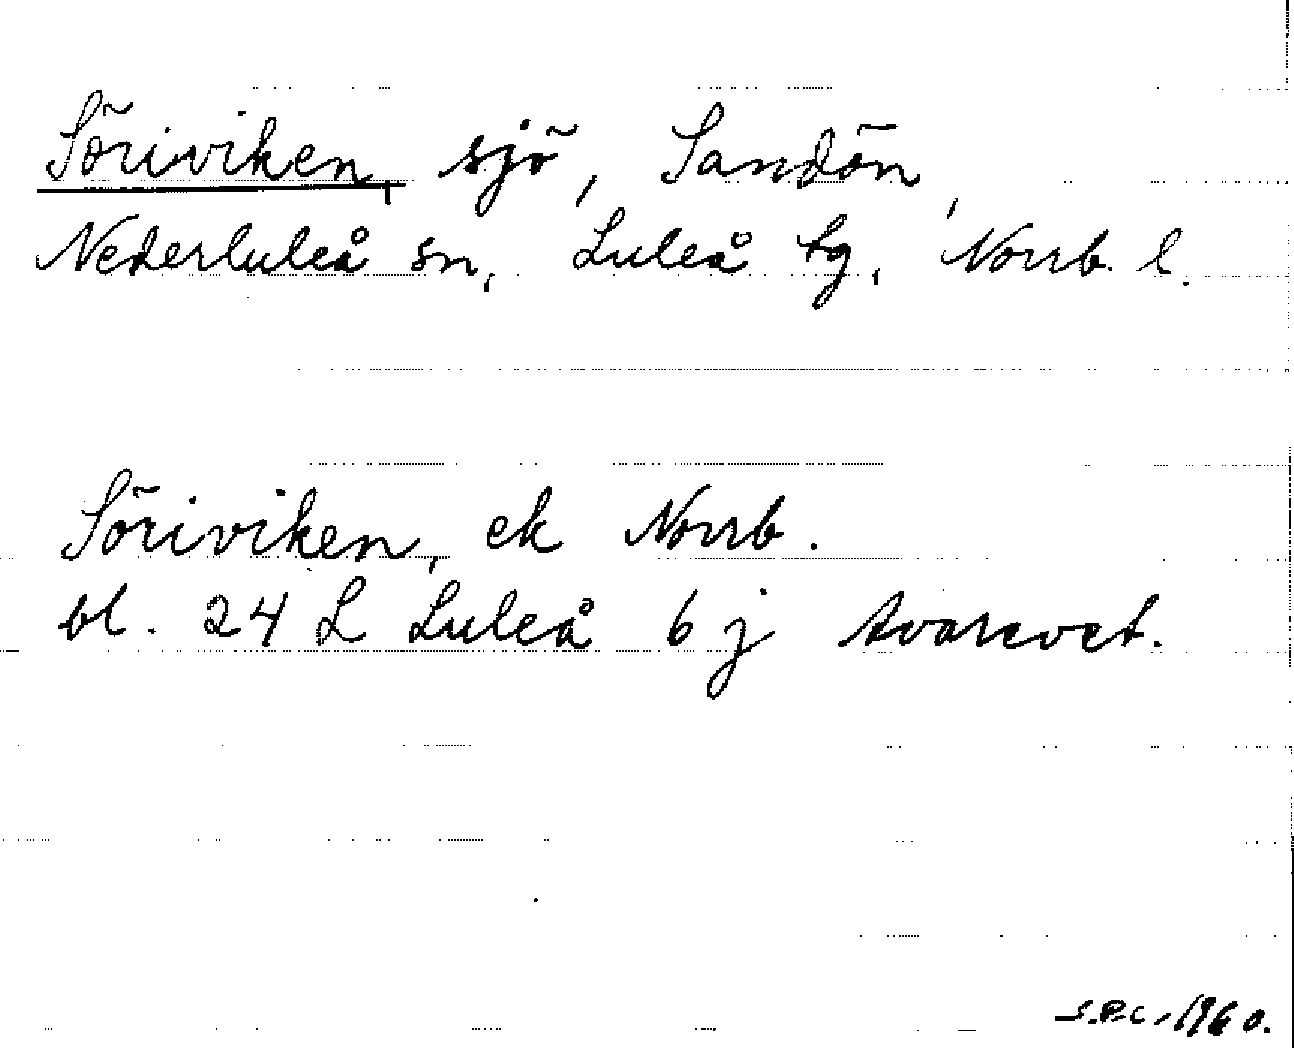 Söriviken, sjö, Sandön,
Nederluleå sn, Luleå tg, Norrb. l.
Söriviken, ek Norrb.
bl. 24 L Luleå 6 j Avarevet.
S.P.C., 1960.